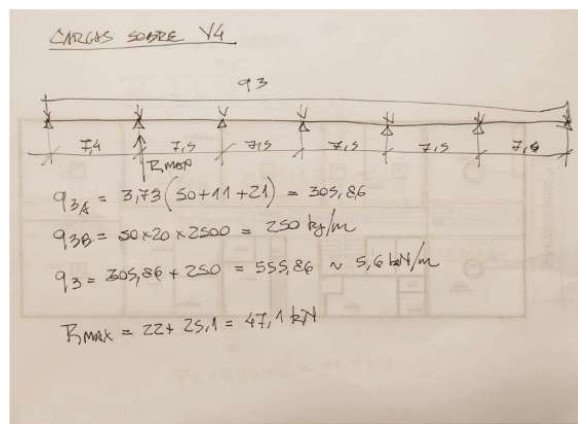 CARGAS SOBRE V4
q3
7,4 7,5 7,5 7,5 7,5 7,4
RMAX
q3A = 3,73(50+11+21) = 305,86
q3B = 50x20x2500 = 250 kg/m
q3 = 305,86 + 250 = 555,86 ~ 5,6 kN/m
RMAX = 22+25,1 = 47,1 kN